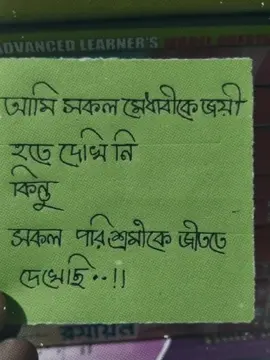 ADVANCED LEARNER'S
আমি সকল মেধাবীকে জয়ী
হতে দেখি নি
কিন্তু
সকল পরিশ্রমীকে জীততে
দেখেছি..!!
রসায়ন